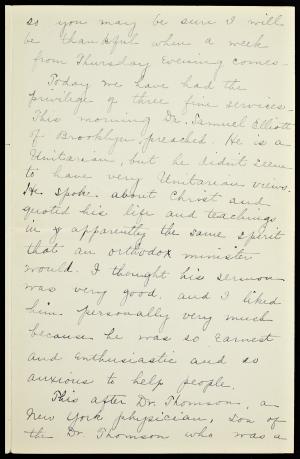 so you may be sure I will
be thankful when a week
from Thursday Evening comes-
Today we have had the
privilege of three fine services-
This morning Dr. Samuel Elliott
of Brooklyn, preached. He is a
Unitarian, but he didn't seem
to have very Unitarian views.
He spoke about Christ and
quoted his life and teachings
in apparently the same spirit
that an orthodox minister
would. I thought his sermon
was very good, and I liked
him personally very much
because he was so Earnest
and Enthusiastic and so
anxious to help people.
This after Dr. Thomson, a
New York physician, son of
the Dr. Thomson who was a